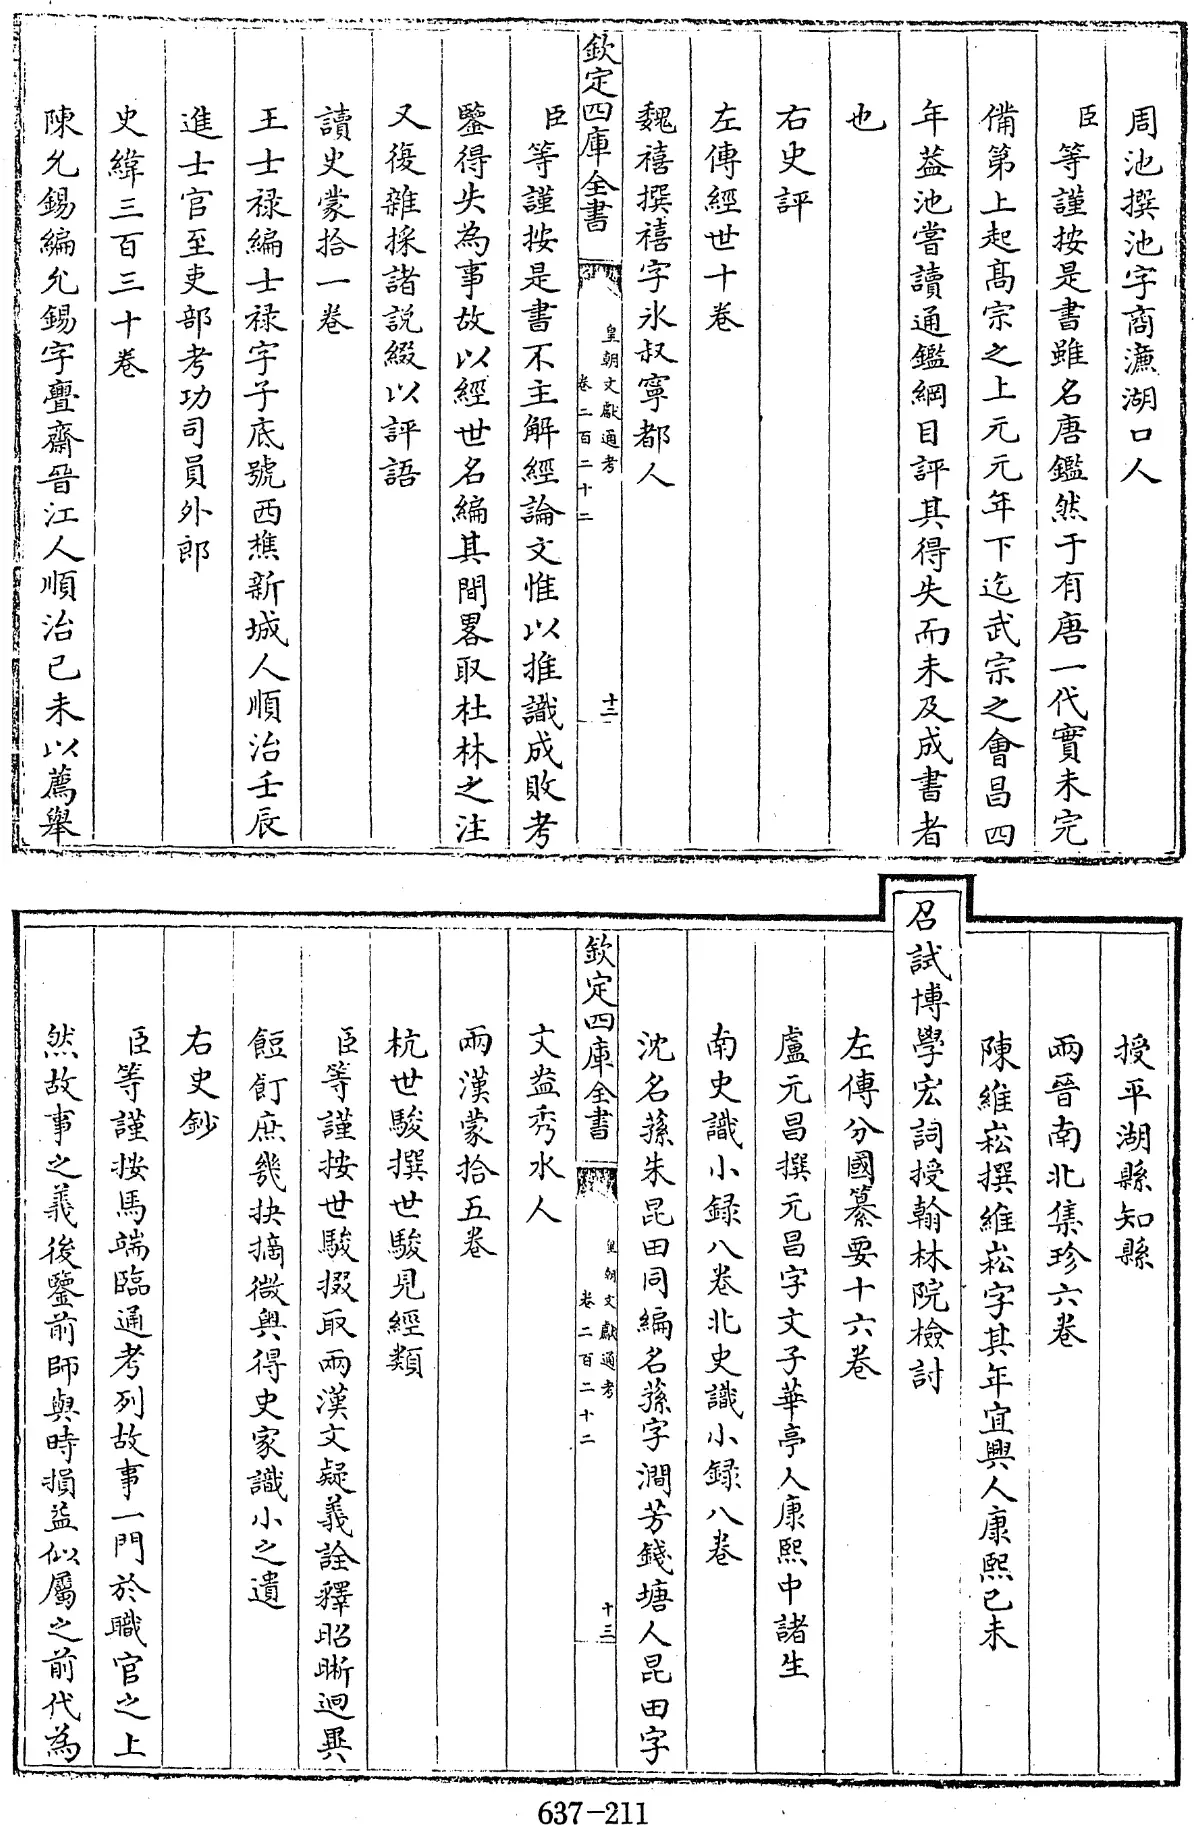 周池撰池字商濂湖口人
臣等謹按是書雖名唐鑑然于有唐一代實未完
備第上起髙宗之上元元年下迄武宗之會昌四
年葢池嘗讀通鑑綱目評其得失而未及成書者
也
右史評
左傳經世十卷
魏禧撰禧字氷叔寧都人
欽定四庫全書
皇朝文獻通考
卷二百二十二
十二
臣等謹按是書不主解經論文惟以推識成敗考
鑒得失為事故以經世名編其間畧取杜林之注
又復雜採諸説綴以評語
讀史蒙拾一卷
王士禄編士禄字子底號西樵新城人順治壬辰
進士官至吏部考功司員外郎
史緯三百三十卷
陳允錫編允錫字亹齋晉江人順治己未以薦舉
授平湖縣知縣
兩晉南北集珍六卷
陳維崧撰維崧字其年宜興人康熙己未
召試博學宏詞授翰林院檢討
左傳分國纂要十六卷
盧元昌撰元昌字文子華亭人康熙中諸生
南史識小録八卷北史識小録八卷
沈名蓀朱昆田同編名蓀字澗芳錢塘人昆田字
欽定四庫全書
皇朝文獻通考
卷二百二十二
十三
文盎秀水人
兩漢蒙拾五卷
杭世駿撰世駿見經類
臣等謹按世駿掇取兩漢文疑義詮釋昭晰迥異
餖飣庶幾抉摘微與得史家識小之遺
右史鈔
臣等謹按馬端臨通考列故事一門於職官之上
然故事之義後鑒前師與時損益似屬之前代為
637-211